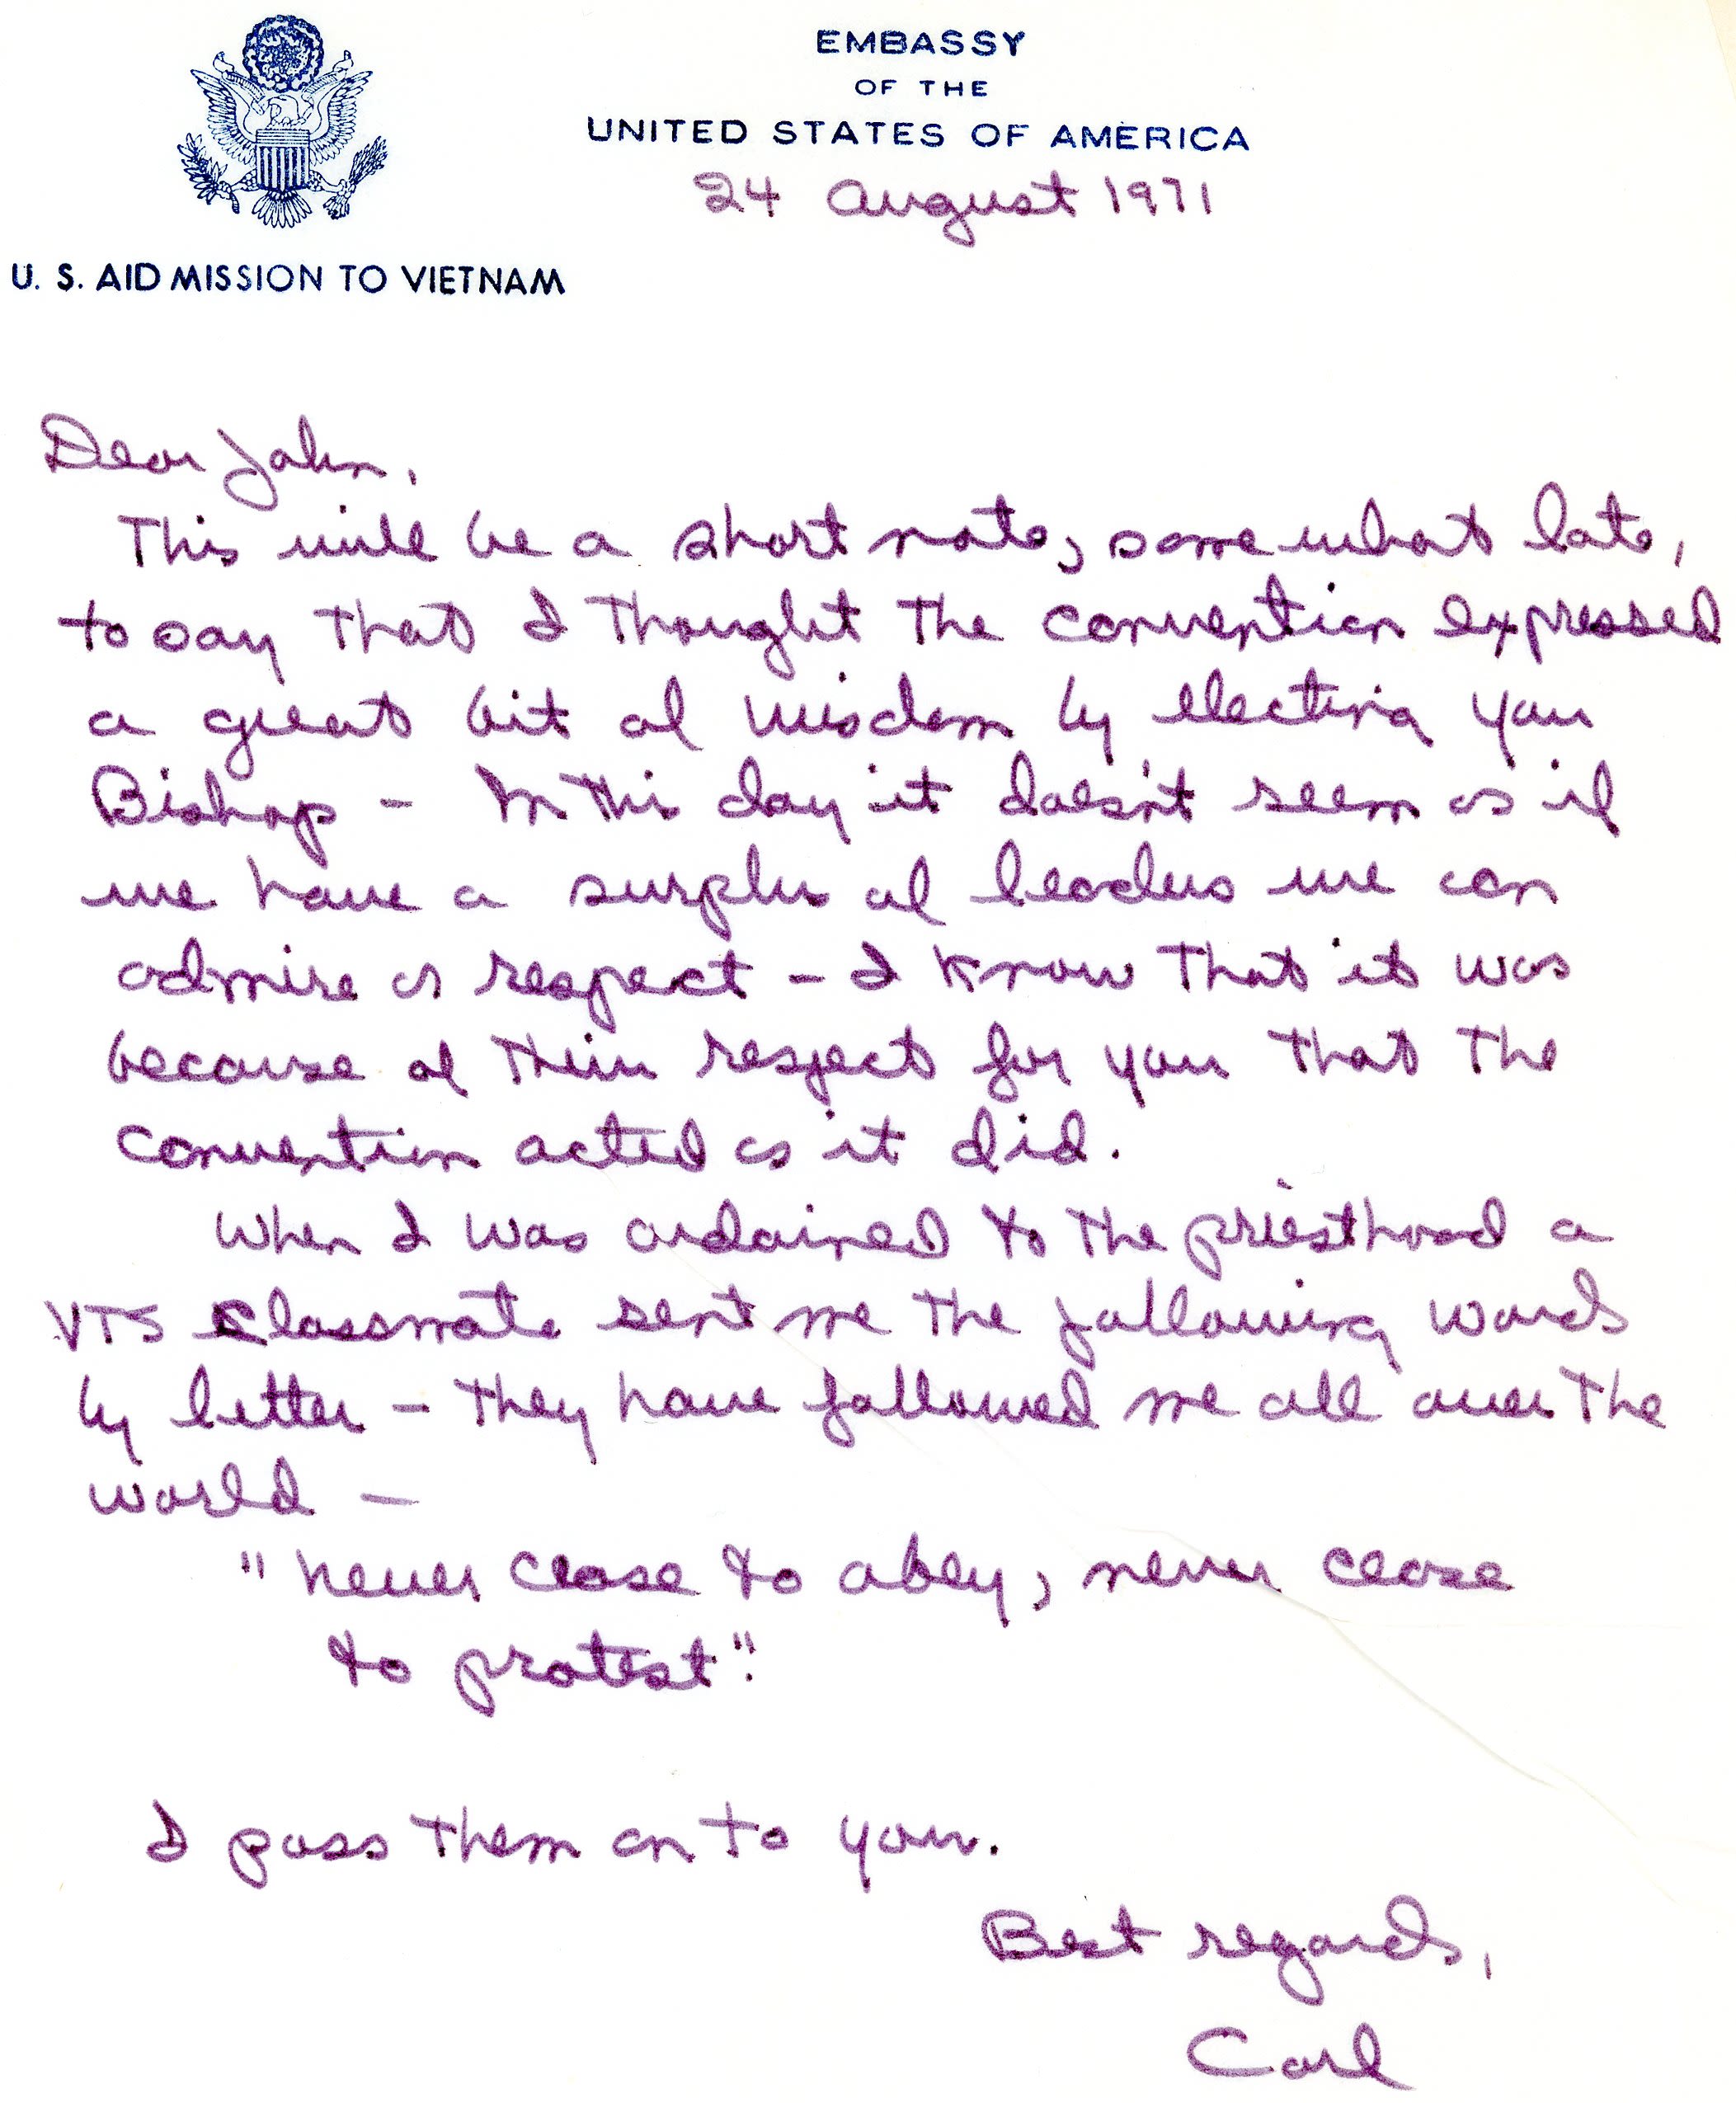 EMBASSY
OF THE
UNITED STATES OF AMERICA
24 August 1971
U. S. AID MISSION TO VIETNAM
Dear John,
This will be a short note, somewhat late,
to say that I thought the convention expressed
a great bit of wisdom by electing you
Bishop - In this day it doesn't seem as if
we have a surplus of leaders we can
admire or respect - I know that it was
because of their respect for you that the
convention acted as it did.
When I was ordained to the priesthood a
VTS classmate sent me the following words
by letter - they have followed me all over the
world -
"never cease to obey, never cease
to protest".
I pass them on to you.
Best regards,
Carl